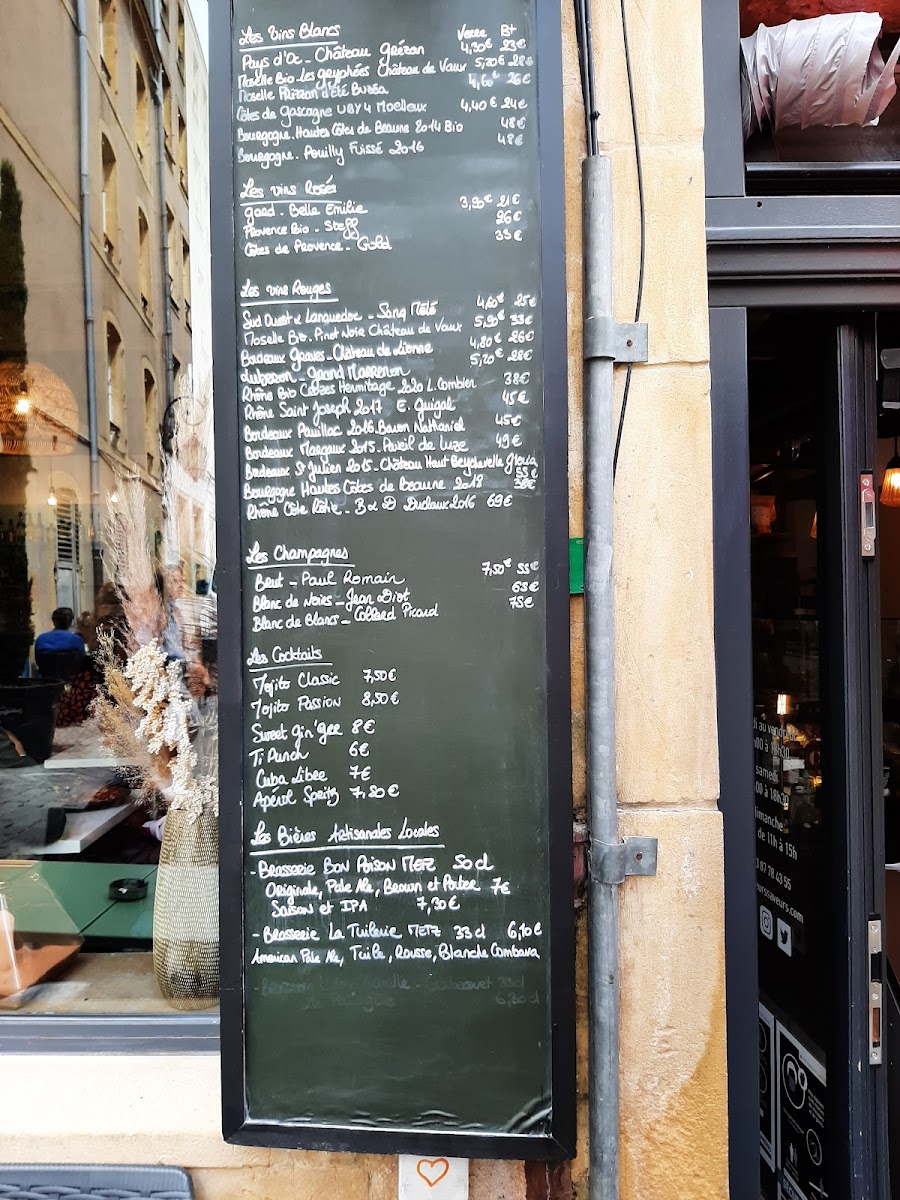 Les Vins Blancs Verre Bt
Pays d'Oc - Château Grézan 4,30€ 23€
Moselle Bio Les gryphées Château de Vaux 5,20€ 28€
Moselle d'été Buzéa 4,60€ 26€
Côtes de Gascogne UBY4 Moelleux 4,40€ 24€
Bourgogne. Hautes Côtes de Beaune 2014 Bio 48€
Bourgogne. Pouilly Fuissé 2016 48€
Les vins Rosés
Gard - Bella Emilie 3,90€ 21€
Provence Bio - Steff 26€
Côtes de Provence - Gold 35€
Les vins Rouges
Sud Ouest & Languedoc - Sang Mêlé 4,60€ 25€
Moselle Bio. Pinot Noir Château de Vaux 5,90€ 33€
Bordeaux Graves - Château de Lionne 4,80€ 26€
Luberon - Grand Marrenon 5,20€ 28€
Rhône Bio Crozes Hermitage 2020 L. Combier 38€
Rhône Saint Joseph 2017 E. Guigal 45€
Bordeaux Pauillac 2016 Baron Nathaniel 45€
Bordeaux Margaux 2015. Aveil de Luze 49€
Bordeaux St Julien 2015 - Château Haut Beychevelle Gloria 55€
Bourgogne Hautes Côtes de Beaune 2018 38€
Rhône Côte Rôtie - B & D Duclaux 2016 69€
Les Champagnes
Brut - Paul Romain 7,50€ 55€
Blanc de Noirs - Jean Diot 65€
Blanc de Blancs - Collard Picard 75€
Les Cocktails
Mojito Classic 7,50€
Mojito Passion 8,50€
Sweet gin'ger 8€
Ti Punch 6€
Cuba Libre 7€
Apérol Spritz 7,50€
Les Bières Artisanales Locales
- Brasserie BON POISON METZ 50cl
Originale, Pale Ale, Brown et Porter 7€
Saison et IPA 7,30€
- Brasserie La Tuilerie METZ 33cl 6,10€
American Pale Ale, Tuile, Rousse, Blanche Combava
di au vendredi
h00 à 18h30
samedi
00 à 18h30
dimanche
de 11h à 15h
87 78 43 55
urssaveurs.com